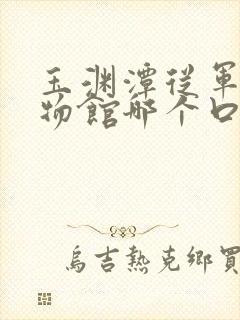 玉渊潭從軍
物館哪个口
烏吉熱克鄉買